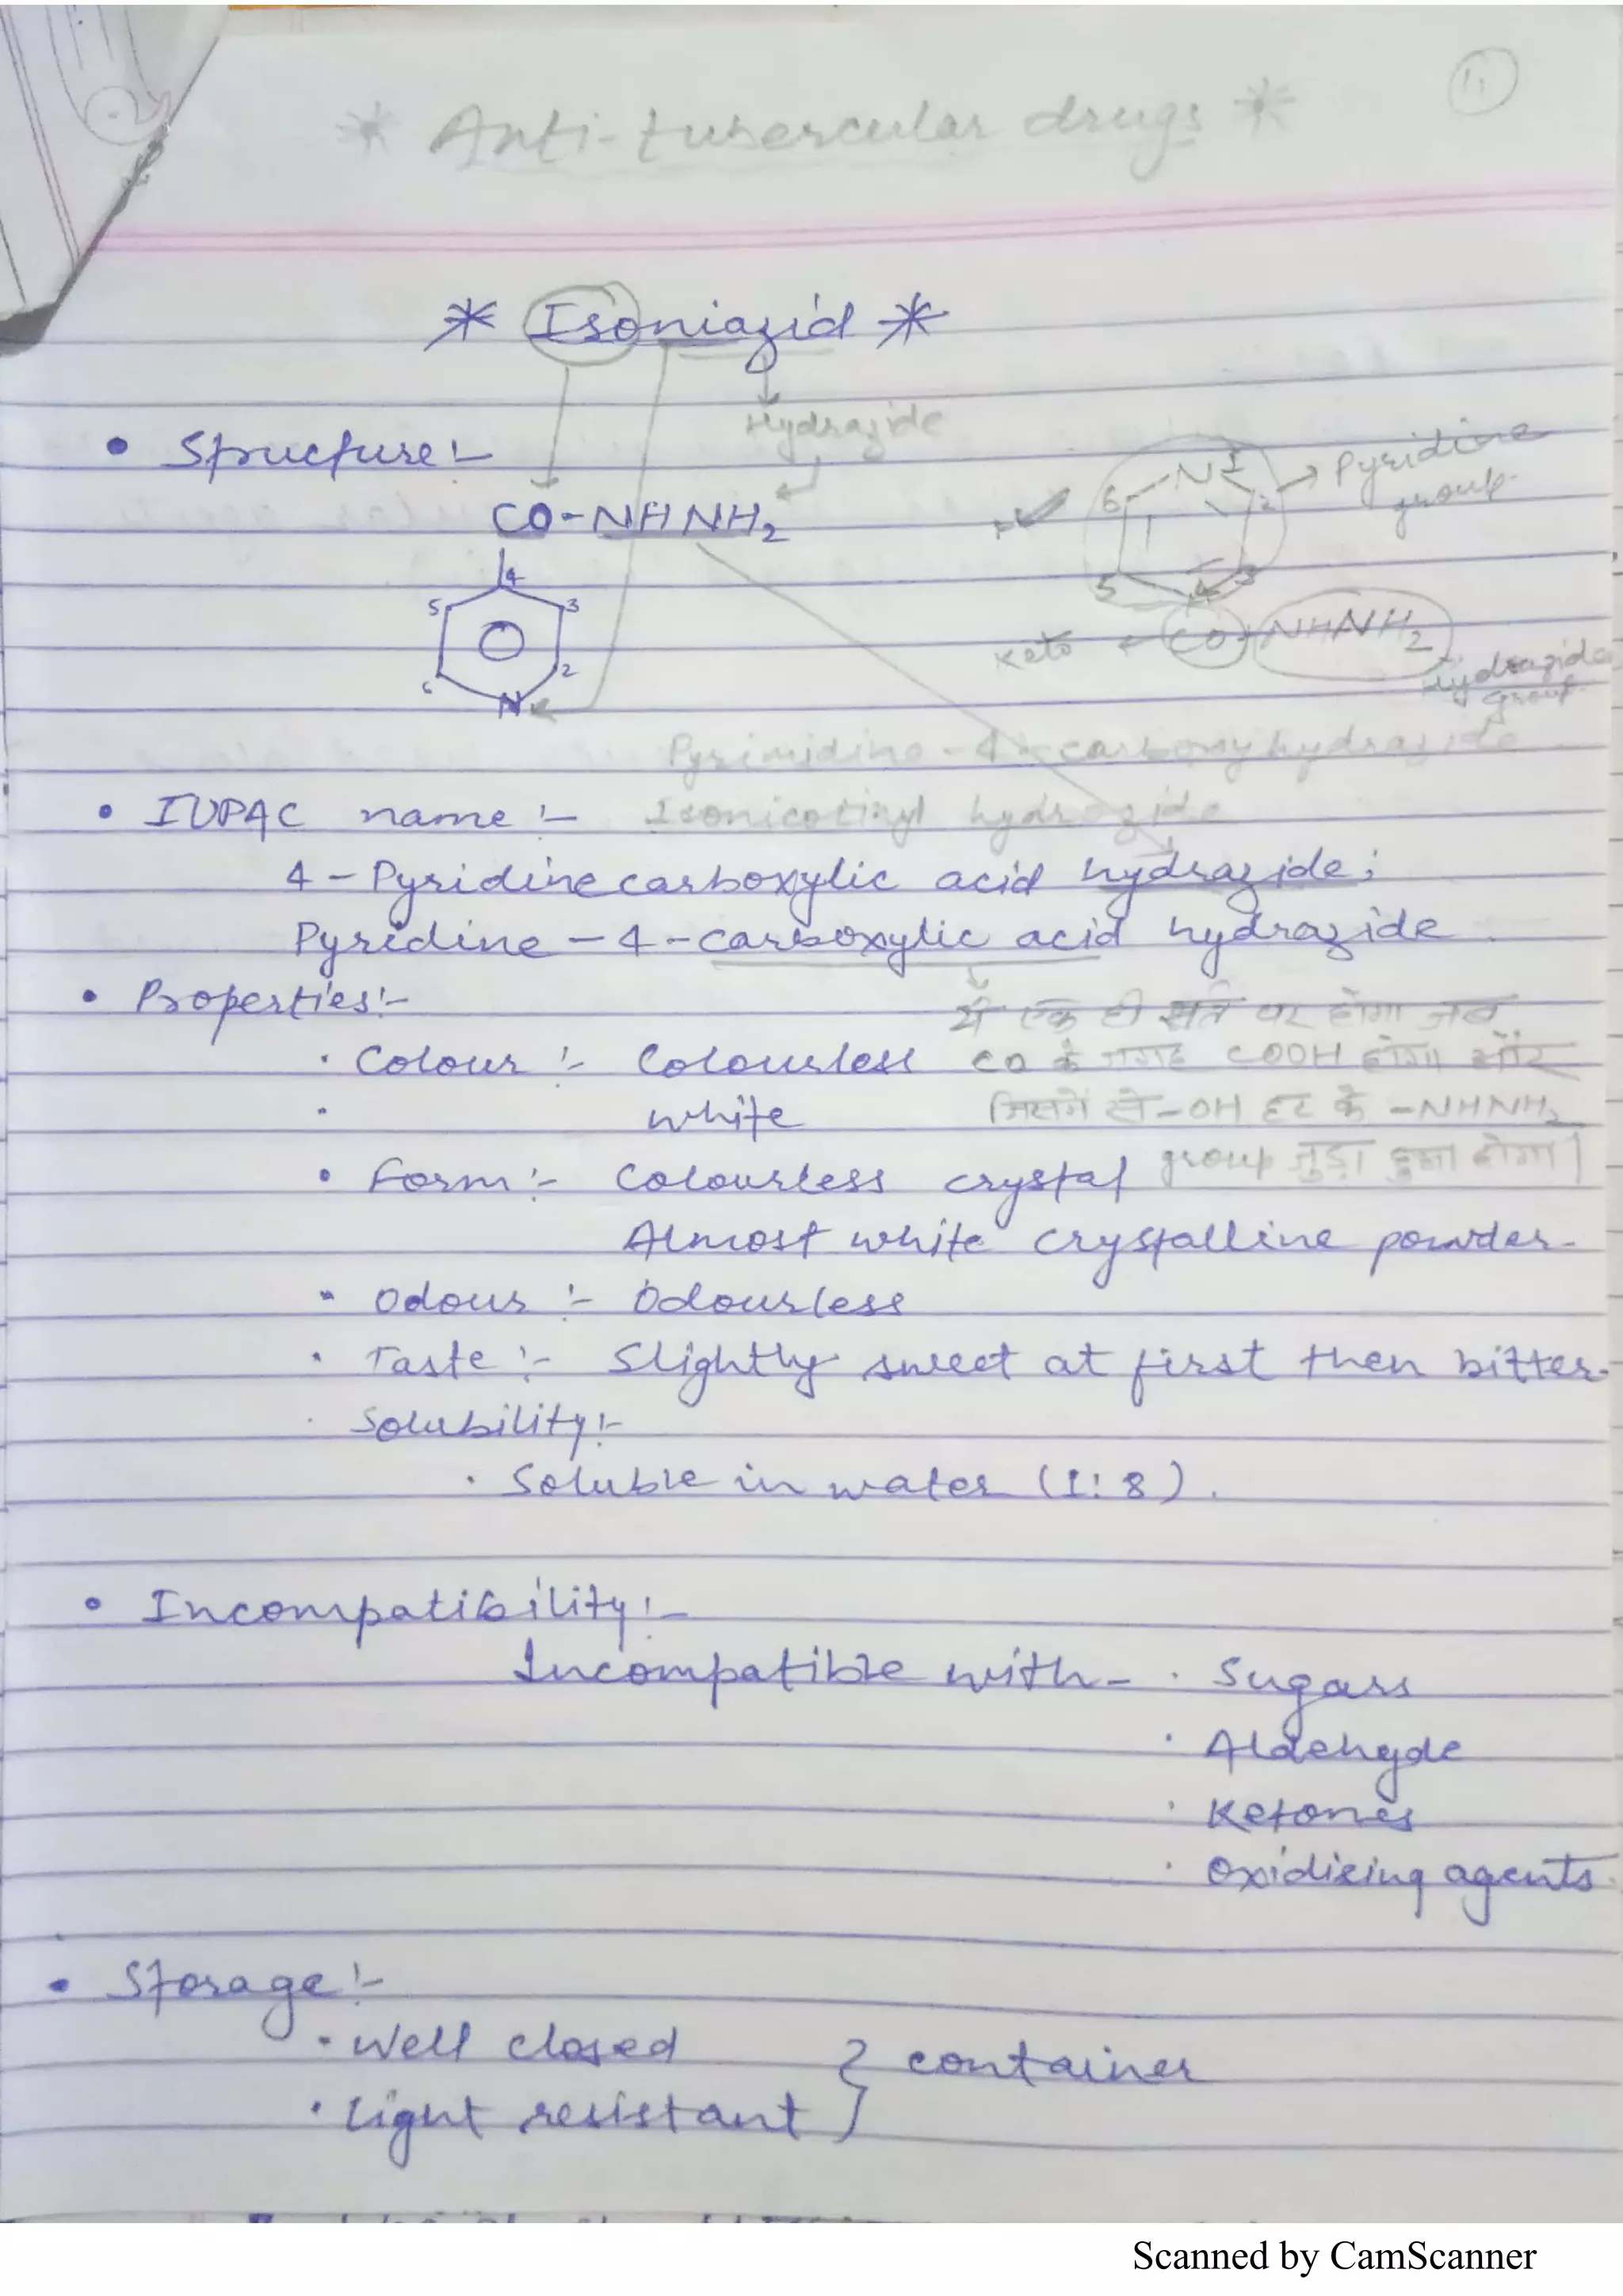 11
* Anti-tubercular drugs *
* Isoniazid *
Hydrazide
• Structure:-
CO-NHNH2
4
5 3
6 2
N
N 1
6 2 → Pyridine group.
5 3
4
Keto ← CO-NHNH2
Hydrazide group.
Pyrimidine-4-carboxy hydrazide
• IUPAC name :- Isonicotinyl hydrazide
4-Pyridine carboxylic acid hydrazide;
Pyridine-4-carboxylic acid hydrazide
• Properties:-
ये एक ही शर्त पर होगा जब
· Colour :- Colourless
CO के जगह COOH होगा और
· white
जिसमें से -OH हट के -NHNH2
group जुड़ा हुआ होगा।
• Form :- Colourless crystal
Almost white crystalline powder.
• Odour :- Odourless
· Taste :- Slightly sweet at first then bitter.
· Solubility:-
· Soluble in water (1:8).
• Incompatibility:-
Incompatible with - · Sugars
· Aldehyde
· Ketones
· Oxidising agents.
• Storage:-
· Well closed
· Light resistant } container
Scanned by CamScanner